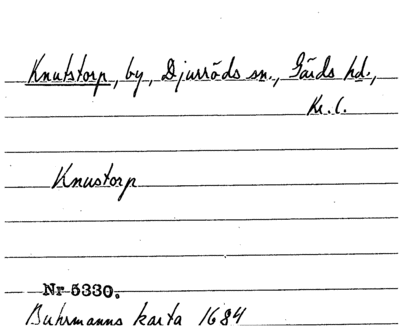 Knutstorp, by, Djurröds sn., Gärds hd.,
Kr. l.
Knustorp
Nr 5330.
Buhrmanns karta 1684